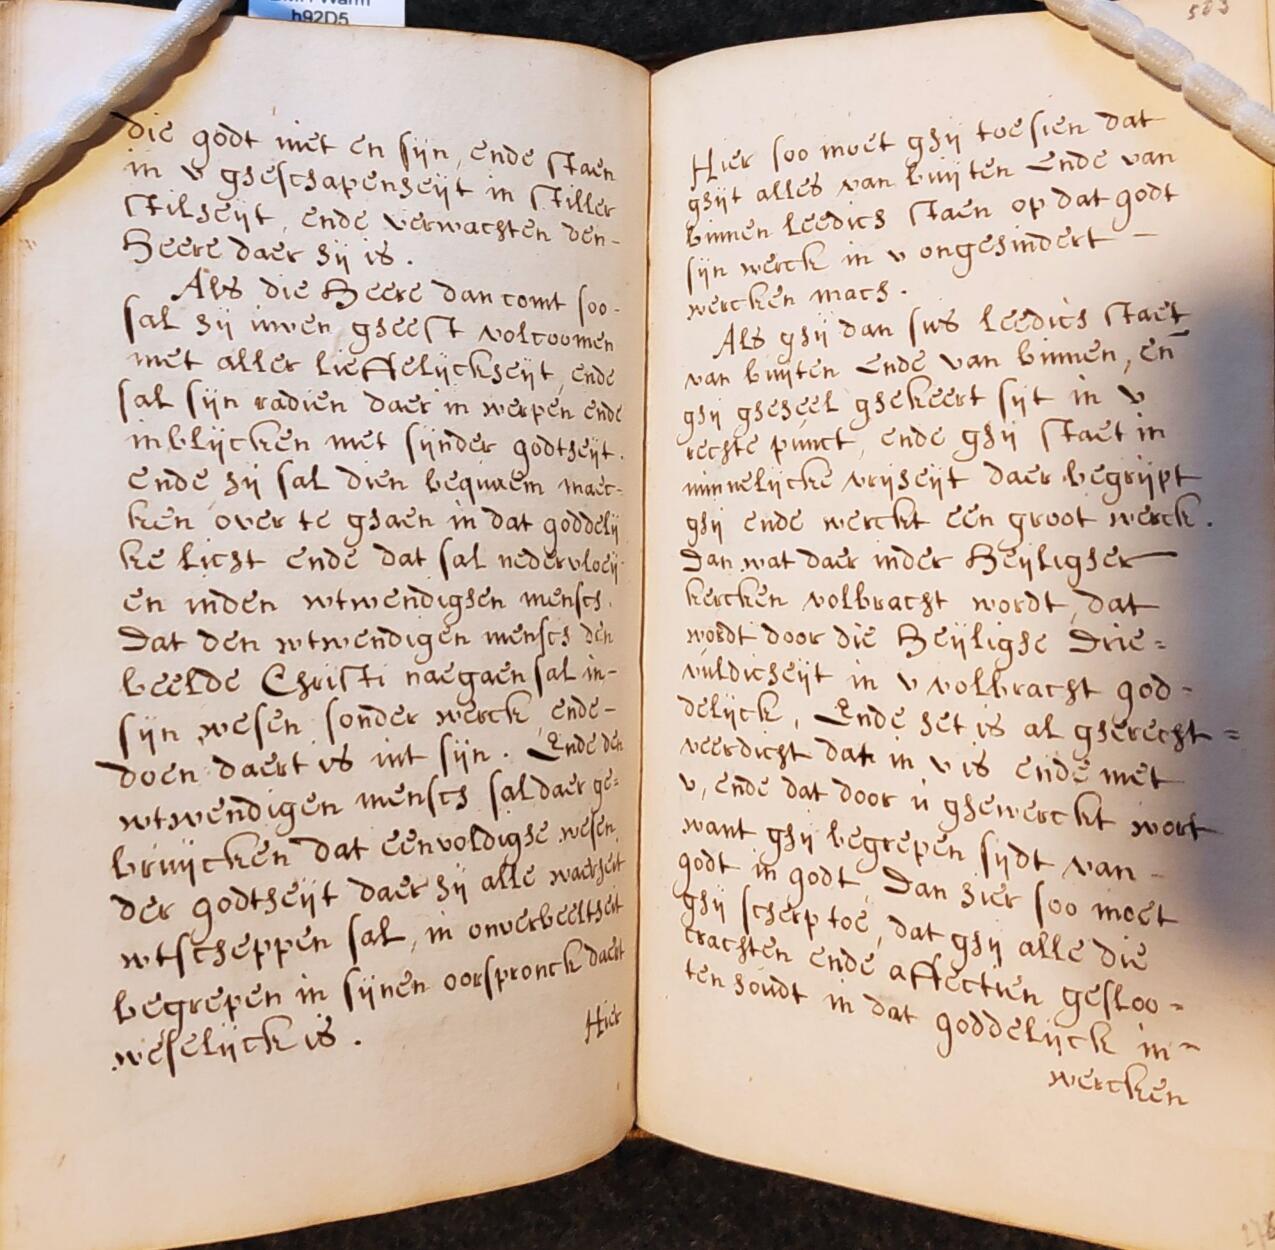 h92D5
die godt niet en sijn, ende staen
in v gheschapenheijt in stiller
stilheijt, ende verwachten den-
Heere daer hij is.
Als die Heere dan comt soo-
sal hij uwen gheest volcoomen
met aller lieffelijckheijt, ende
sal sijn radien daer in werpen ende
inblijcken met sijnder godtheijt.
ende hij sal dien bequaem maec-
ken over te ghaen in dat goddelij
ke licht ende dat sal nedervloeij
en inden wtwendighen mensch.
Dat den wtwendigen mensch den
beelde Christi naegaen sal in-
sijn wesen sonder werck ende-
doen daert is int sijn. Ende den
wtwendigen mensch sal daer ge=
bruijcken dat eenvoldighe wesen
der godtheijt daer hij alle waerheit
wtscheppen sal, in onverbeeltheit
begrepen in sijnen oorspronck daert
weselijck is.
Hier
583
Hier soo moet ghij toesien dat
ghijt alles van buijten ende van
binnen leedich staen op dat godt
sijn werck in v ongehindert -
wercken mach.
Als ghij dan sus leedich staet
van buijten ende van binnen, en̄
ghij gheheel ghekeert sijt in v
rechte punct, ende ghij staet in
minnelijcke vrijheijt daer begrijpt
ghij ende werckt een groot werck.
Dan wat daer inder Heijligher
kercken volbracht wordt, dat
wordt door die Heijlighe Drie=
vuldicheijt in v volbracht god-
delijck, Ende het is al gherecht=
veerdicht dat in v is ende met
v, ende dat door u ghewerckt wort
want ghij begrepen sijdt van -
godt in godt, Dan hier soo moet
ghij scherp toe, dat ghij alle die
crachten ende affectien gesloo=
ten houdt in dat goddelijck in-
wercken